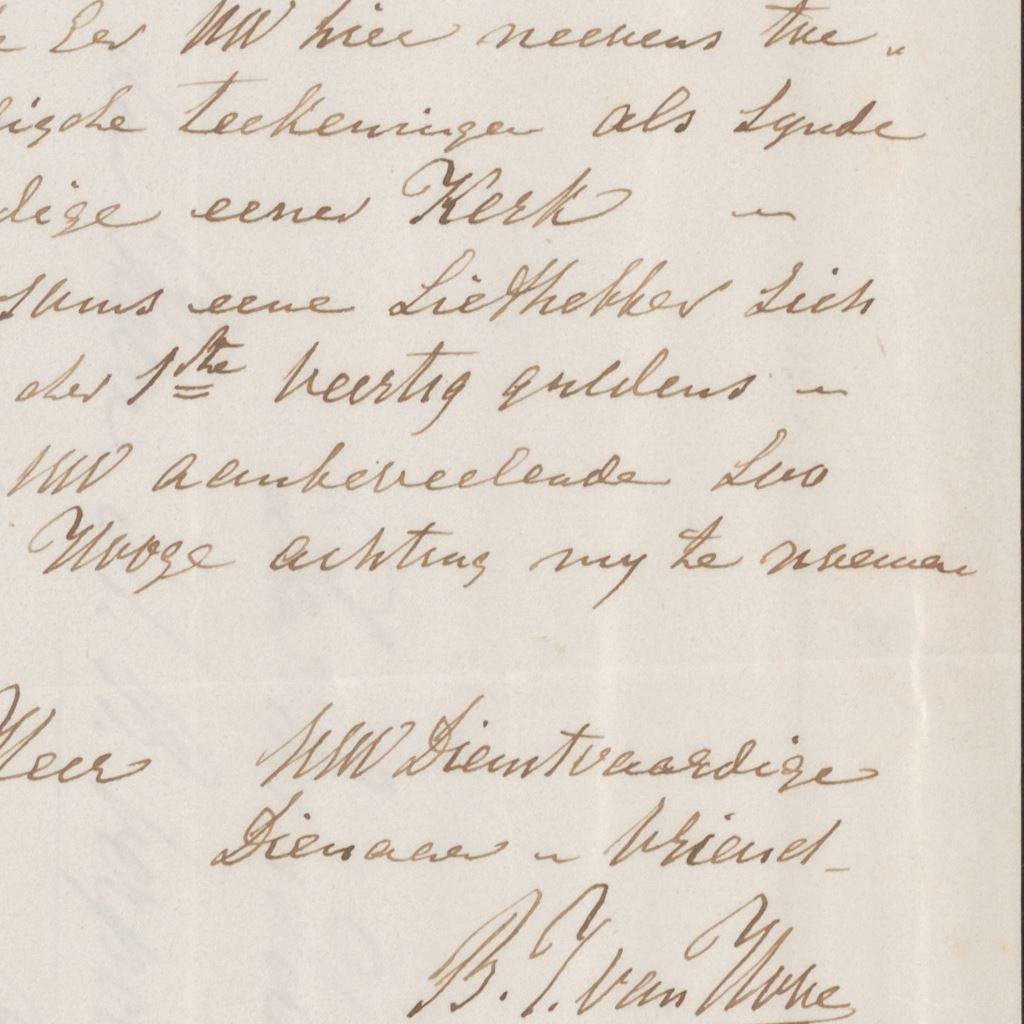 Eer UW hier neevens twe„
ligche teekeningen als synde
dige eener Kerk –
soms eene Liefhebber sich
der 1ste veertig guldens –
UW aanbeveelende soo
Hooge achting my te noemen
Heer UW Dienstvaardige
Dienaar – Vriend
B. J. van Hove